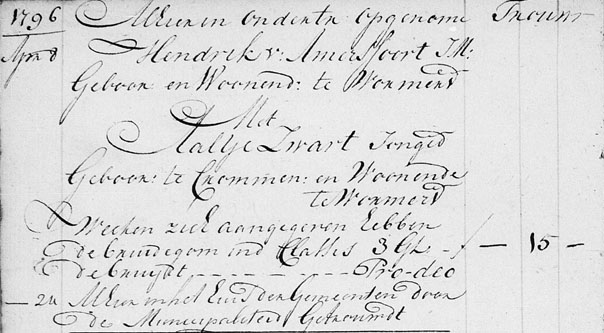 1796 Alhier in ondertr opgenome Trouwr
April 8 Hendrik v: Amersfoort J.M:
Geboor en Woonend: te Wormerd
Met
Aaltje Zwart Jonged
Geboor: te Crommen: en Woonende
te Wormerd
Welken zich aangegeven Hebben
de bruidegom ind Classes 3 Gl: - f — 15 —
de bruijdt - - - - - - - Pro-deo
— 24 Alhier in het Huis der Gemeenten door
de Municipaliteid Getrouwdt